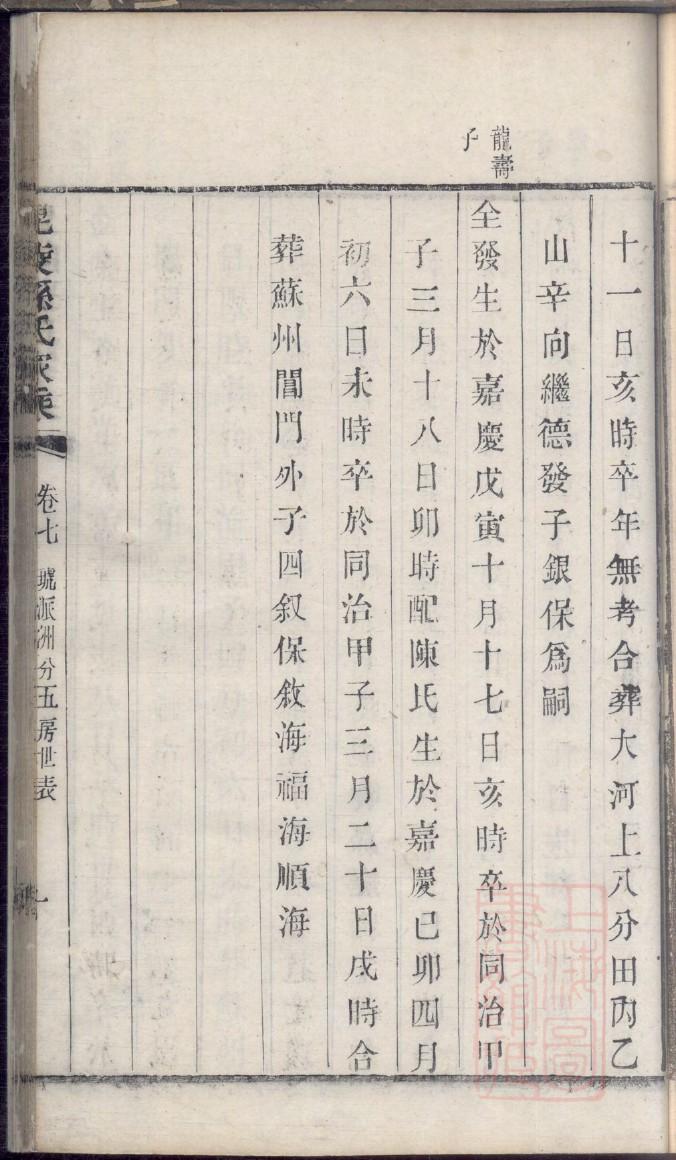 十一日亥時卒年無考合葬大河上八分田內乙
山辛向繼德發子銀保爲嗣
龍壽
子
全發生於嘉慶戊寅十月十七日亥時卒於同治甲
子三月十八日卯時配陳氏生於嘉慶已卯四月
初六日未時卒於同治甲子三月二十日戌時合
葬蘇州閶門外子四叙保敘海福海順海
孫氏家乘
卷七 號派洲分五房世表
上海圖書館藏